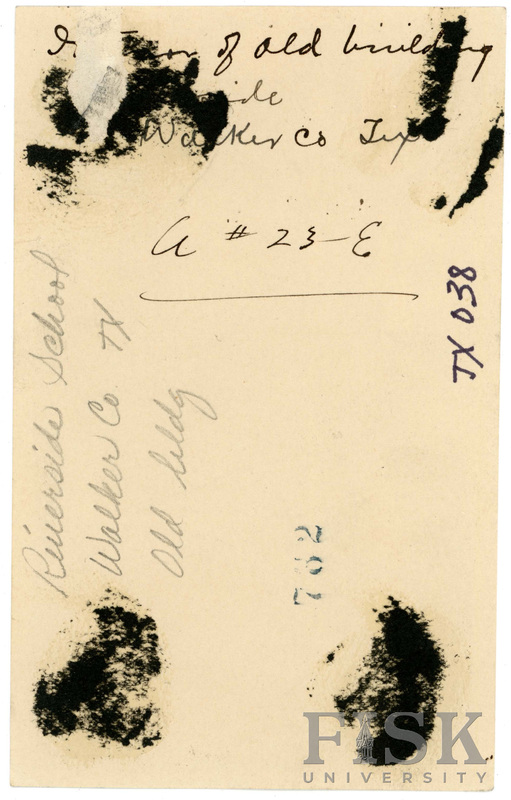 of old building
Walker Co Tex
A # 23-E
TX 038
Riverside School
Walker Co TX
Old bldg
762
FISK
UNIVERSITY